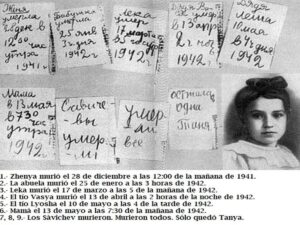 Женя
умерла
28 дек в
12 00 час
утра
1941 г
Бабушка
умерла
25 янв
3 ч дня
1942 г
Лека
умер
17 марта
в 5 часов
утра
1942 г
умер
в 13 апр
2 ч ночь
1942 г
Дядя
Леша
10 мая
в 4 ч дня
1942 г
Мама
в 13 мая
в 7 30 час
утра
1942 г
Савиче-
вы
умер-
ли
умер-
ли
все
осталась
одна
Таня
1.- Zhenya murió el 28 de diciembre a las 12:00 de la mañana de 1941.
2.- La abuela murió el 25 de enero a las 3 horas de 1942.
3.- Leka murió el 17 de marzo a las 5 de la mañana de 1942.
4.- El tío Vasya murió el 13 de abril a las 2 horas de la noche de 1942.
5.- El tío Lyosha el 10 de mayo a las 4 de la tarde de 1942.
6.- Mamá el 13 de mayo a las 7:30 de la mañana de 1942.
7, 8, 9.- Los Sávichev murieron. Murieron todos. Sólo quedó Tanya.